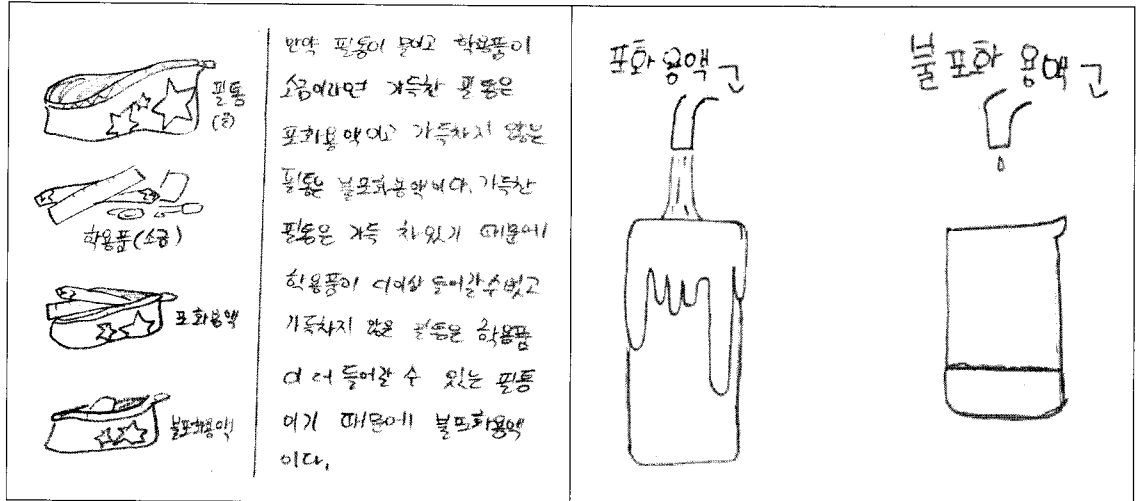 필통
(물)
학용품(소금)
포화용액
불포화용액
만약 필통이 물이고 학용품이
소금이라면 가득찬 필통은
포화용액이고 가득차지 않은
필통은 불포화용액이다. 가득찬
필통은 가득 차있기 때문에
학용품이 더이상 들어갈수없고
가득차지 않은 필통은 학용품
이 더 들어갈 수 있는 필통
이기 때문에 불포화용액
이다.
포화용액 고
불포화 용액 고